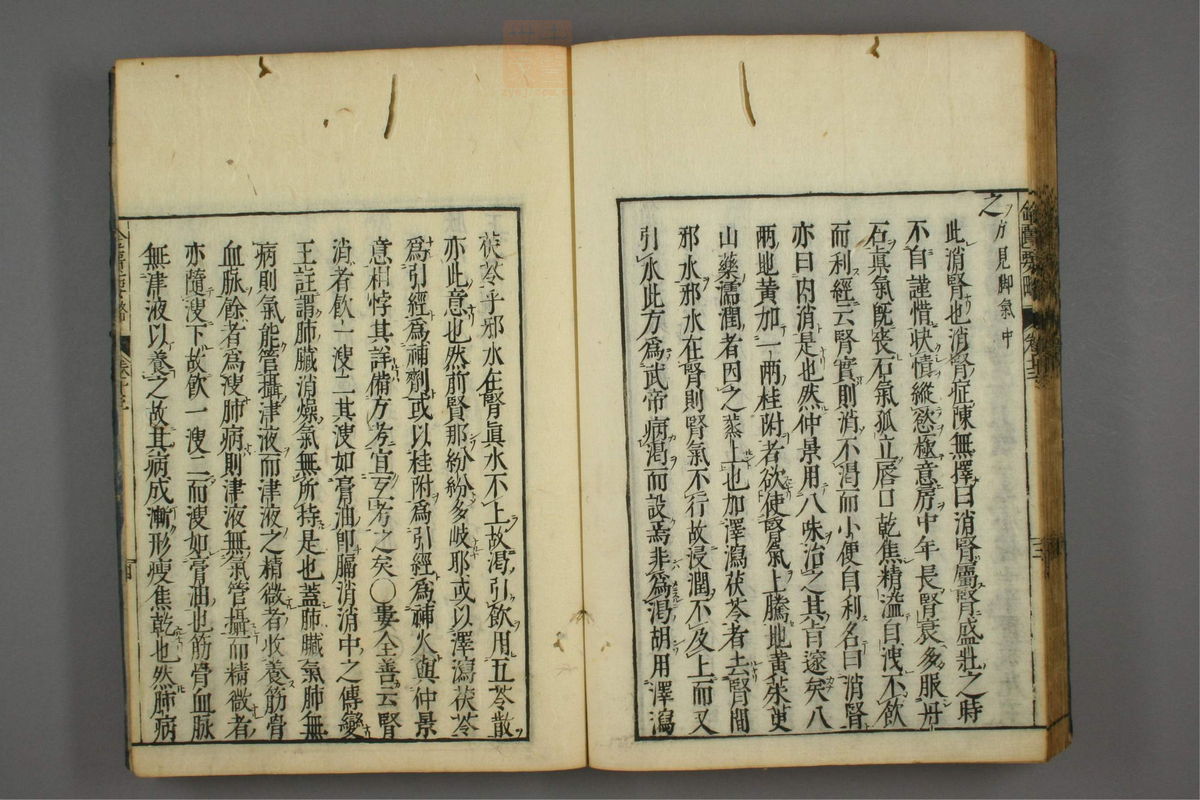 之方見脚氣中
此消腎也消腎症陳無擇曰消腎屬腎盛壯之時
不自謹惜快情縱慾極意房中年長腎衰多服丹
石眞氣既喪石氣孤立唇口乾焦精溢自洩不飮
而利經云腎實則消不渴而小便自利名曰消腎
亦曰内消是也然仲景用八味治之其旨邃矣八
兩地黄加一兩桂附者欲使腎氣上騰地黄茱萸
山藥濡潤者因之蒸上也加澤瀉茯苓者去腎間
邪水邪水在腎則腎氣不行故浸潤不及上而又
引水此方爲武帝病渴而設焉非爲渴胡用澤瀉
茯苓乎邪水在腎眞水不上故渴引飮用五苓散
亦此意也然前腎那紛紛多岐耶或以澤瀉茯苓
爲引經爲補劑或以桂附爲引經爲補火與仲景
意相悖其詳備方考宜互考之矣○婁全善云腎
消者飮一溲二其溲如膏油即膈消消中之傳變
王註謂肺臟消燥氣無所持是也蓋肺臟氣肺無
病則氣能管攝津液而津液之精微者收養筋骨
血脉餘者爲溲肺病則津液無氣管攝而精微者
亦隨溲下故飮一溲二而溲如膏油也筋骨血脉
無津液以養之故其病成漸形瘦焦乾也然肺病